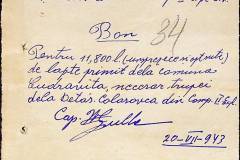 Bon
34
Pentru 11,800 l (unsprezece optsute)
de lapte primit dela comuna
necesar trupei
dela Detaș. Colarovca din Comp.
Cap.
20-VII-943